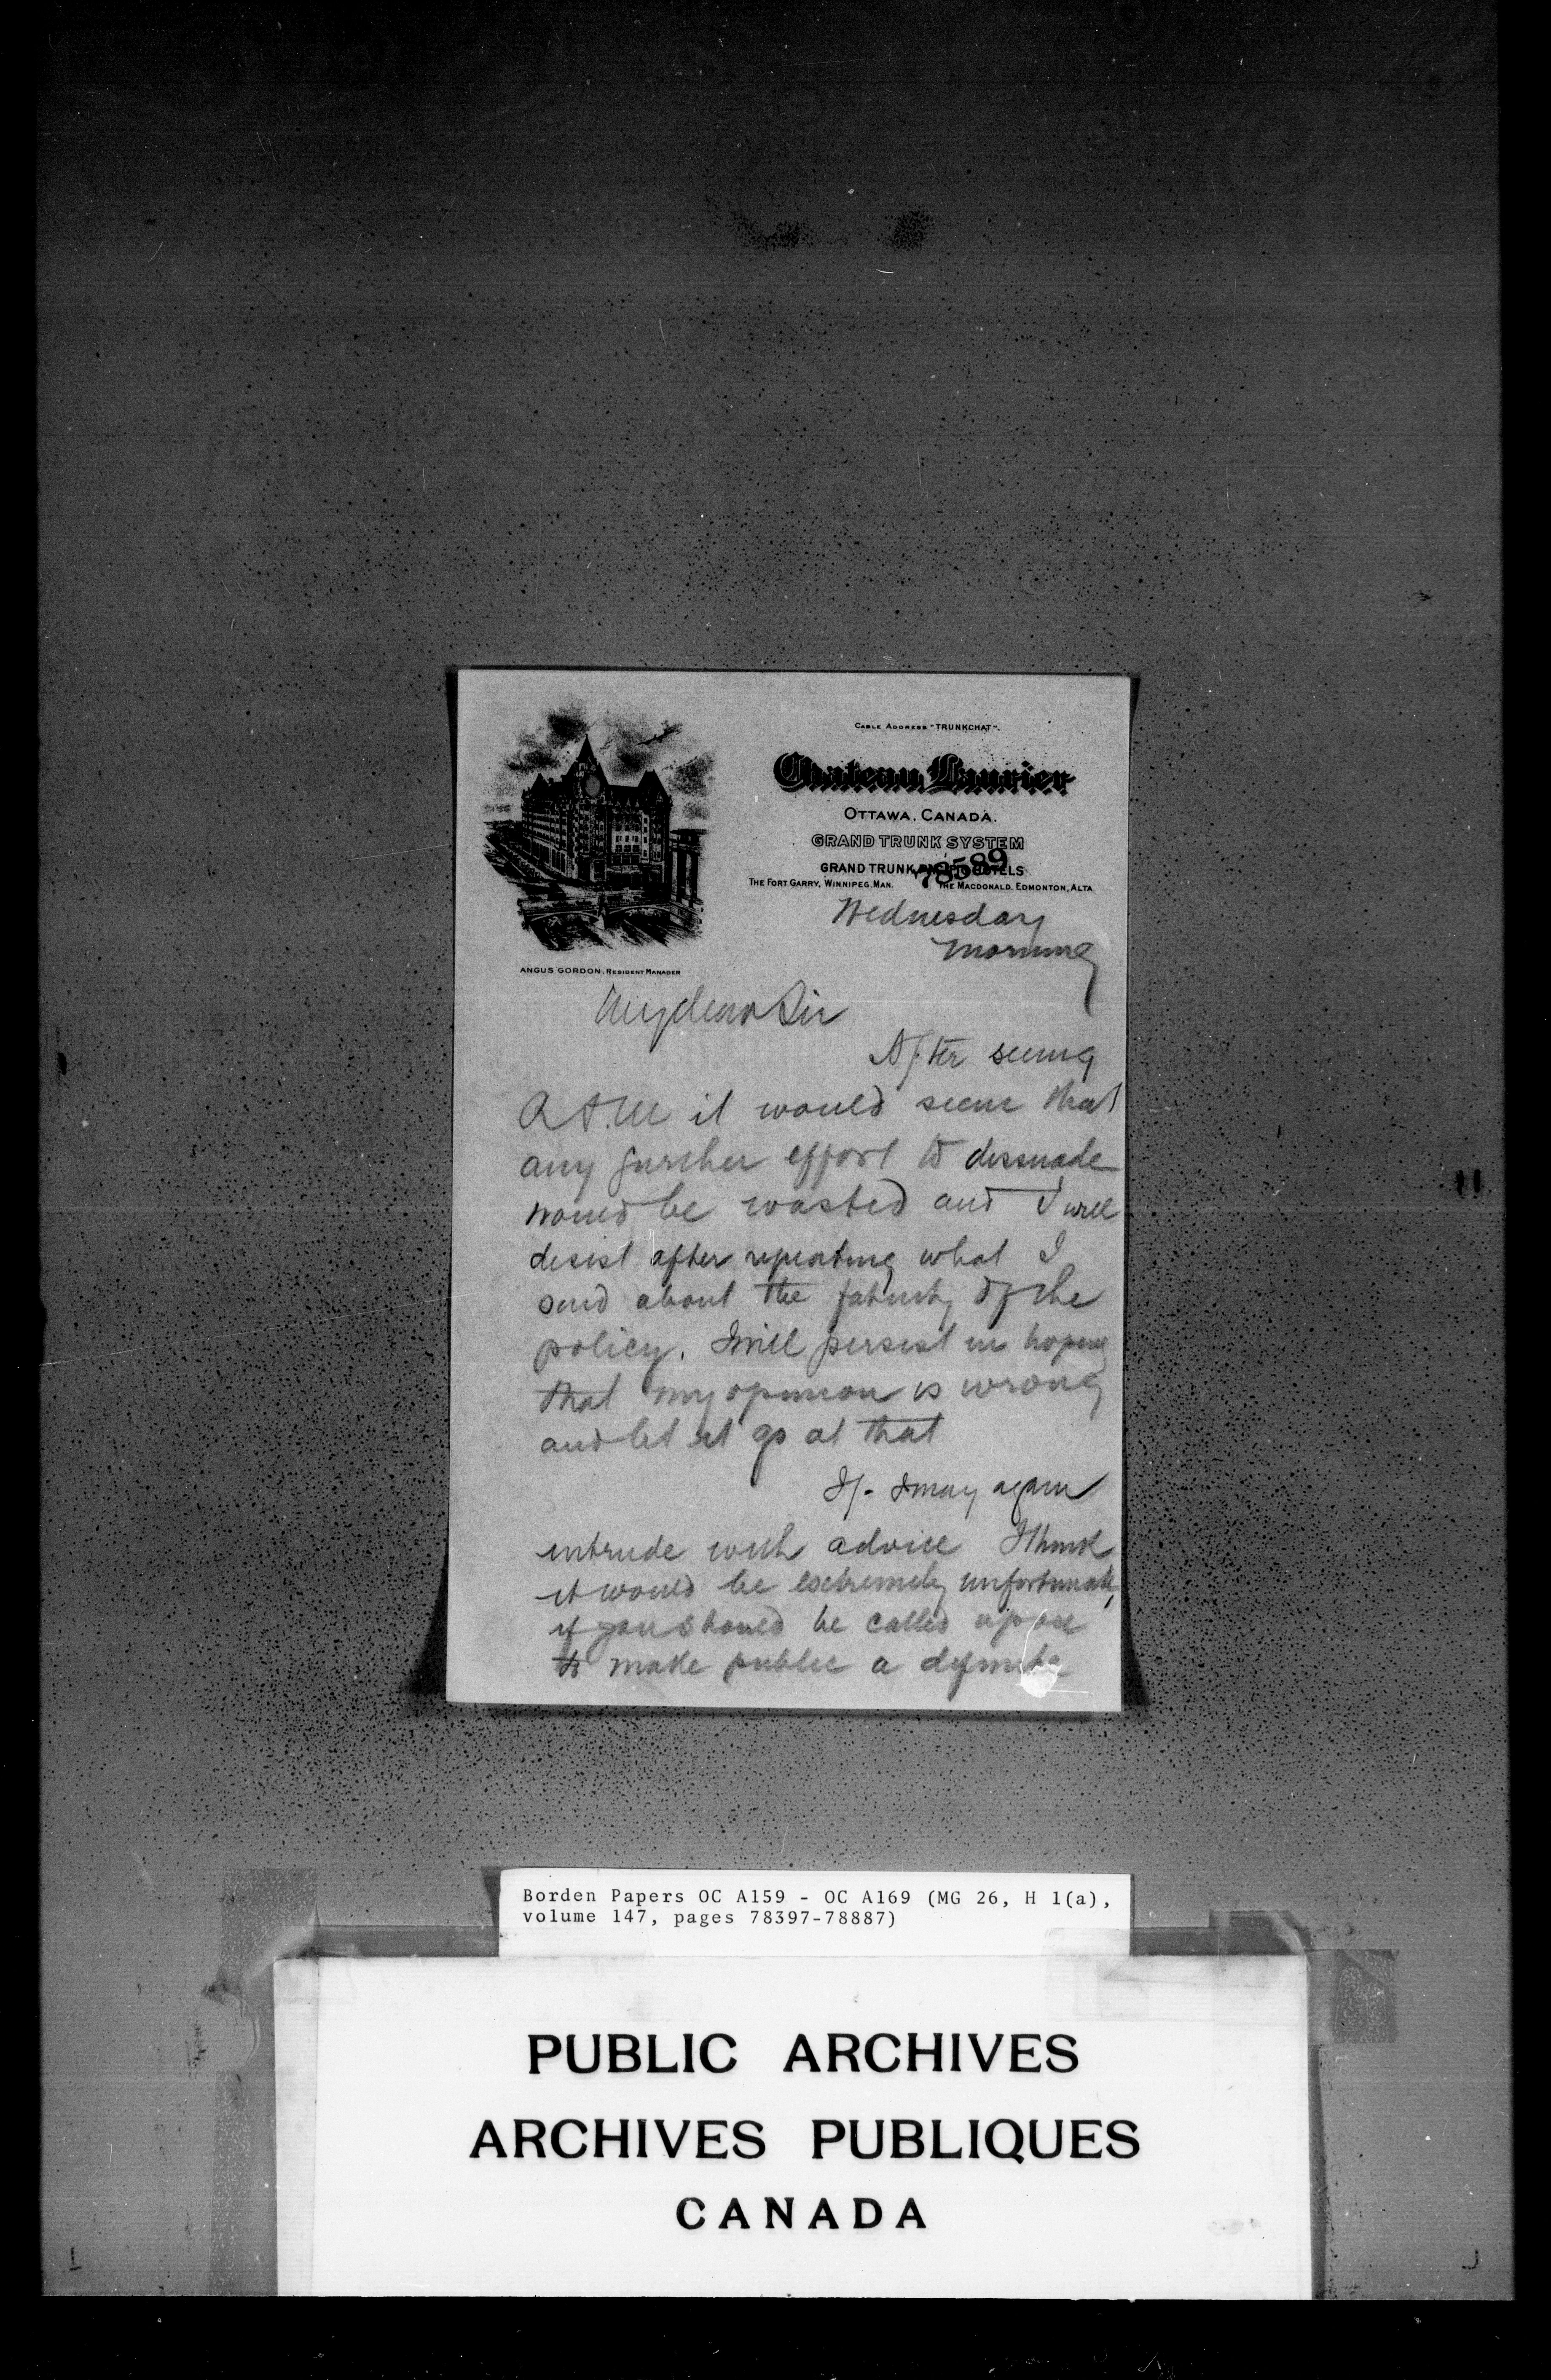 CABLE ADDRESS "TRUNKCHAT".
Chateau Laurier
OTTAWA, CANADA.
GRAND TRUNK SYSTEM
GRAND TRUNK HOTELS
78589
THE FORT GARRY, WINNIPEG, MAN. THE MACDONALD, EDMONTON, ALTA
ANGUS GORDON, RESIDENT MANAGER
Wednesday
Morning
My dear Sir
After seeing
it would seem that
any further effort to dissuade
would be wasted and I will
desist after repeating what I
said about the fatuity of the
policy. I will persist in hoping
that my opinion is wrong
and let it go at that
If I may again
intrude with advice I think
it would be extremely unfortunate
if you should be called upon
to make public a definite
Borden Papers OC A159 - OC A169 (MG 26, H 1(a),
volume 147, pages 78397-78887)
PUBLIC ARCHIVES
ARCHIVES PUBLIQUES
CANADA